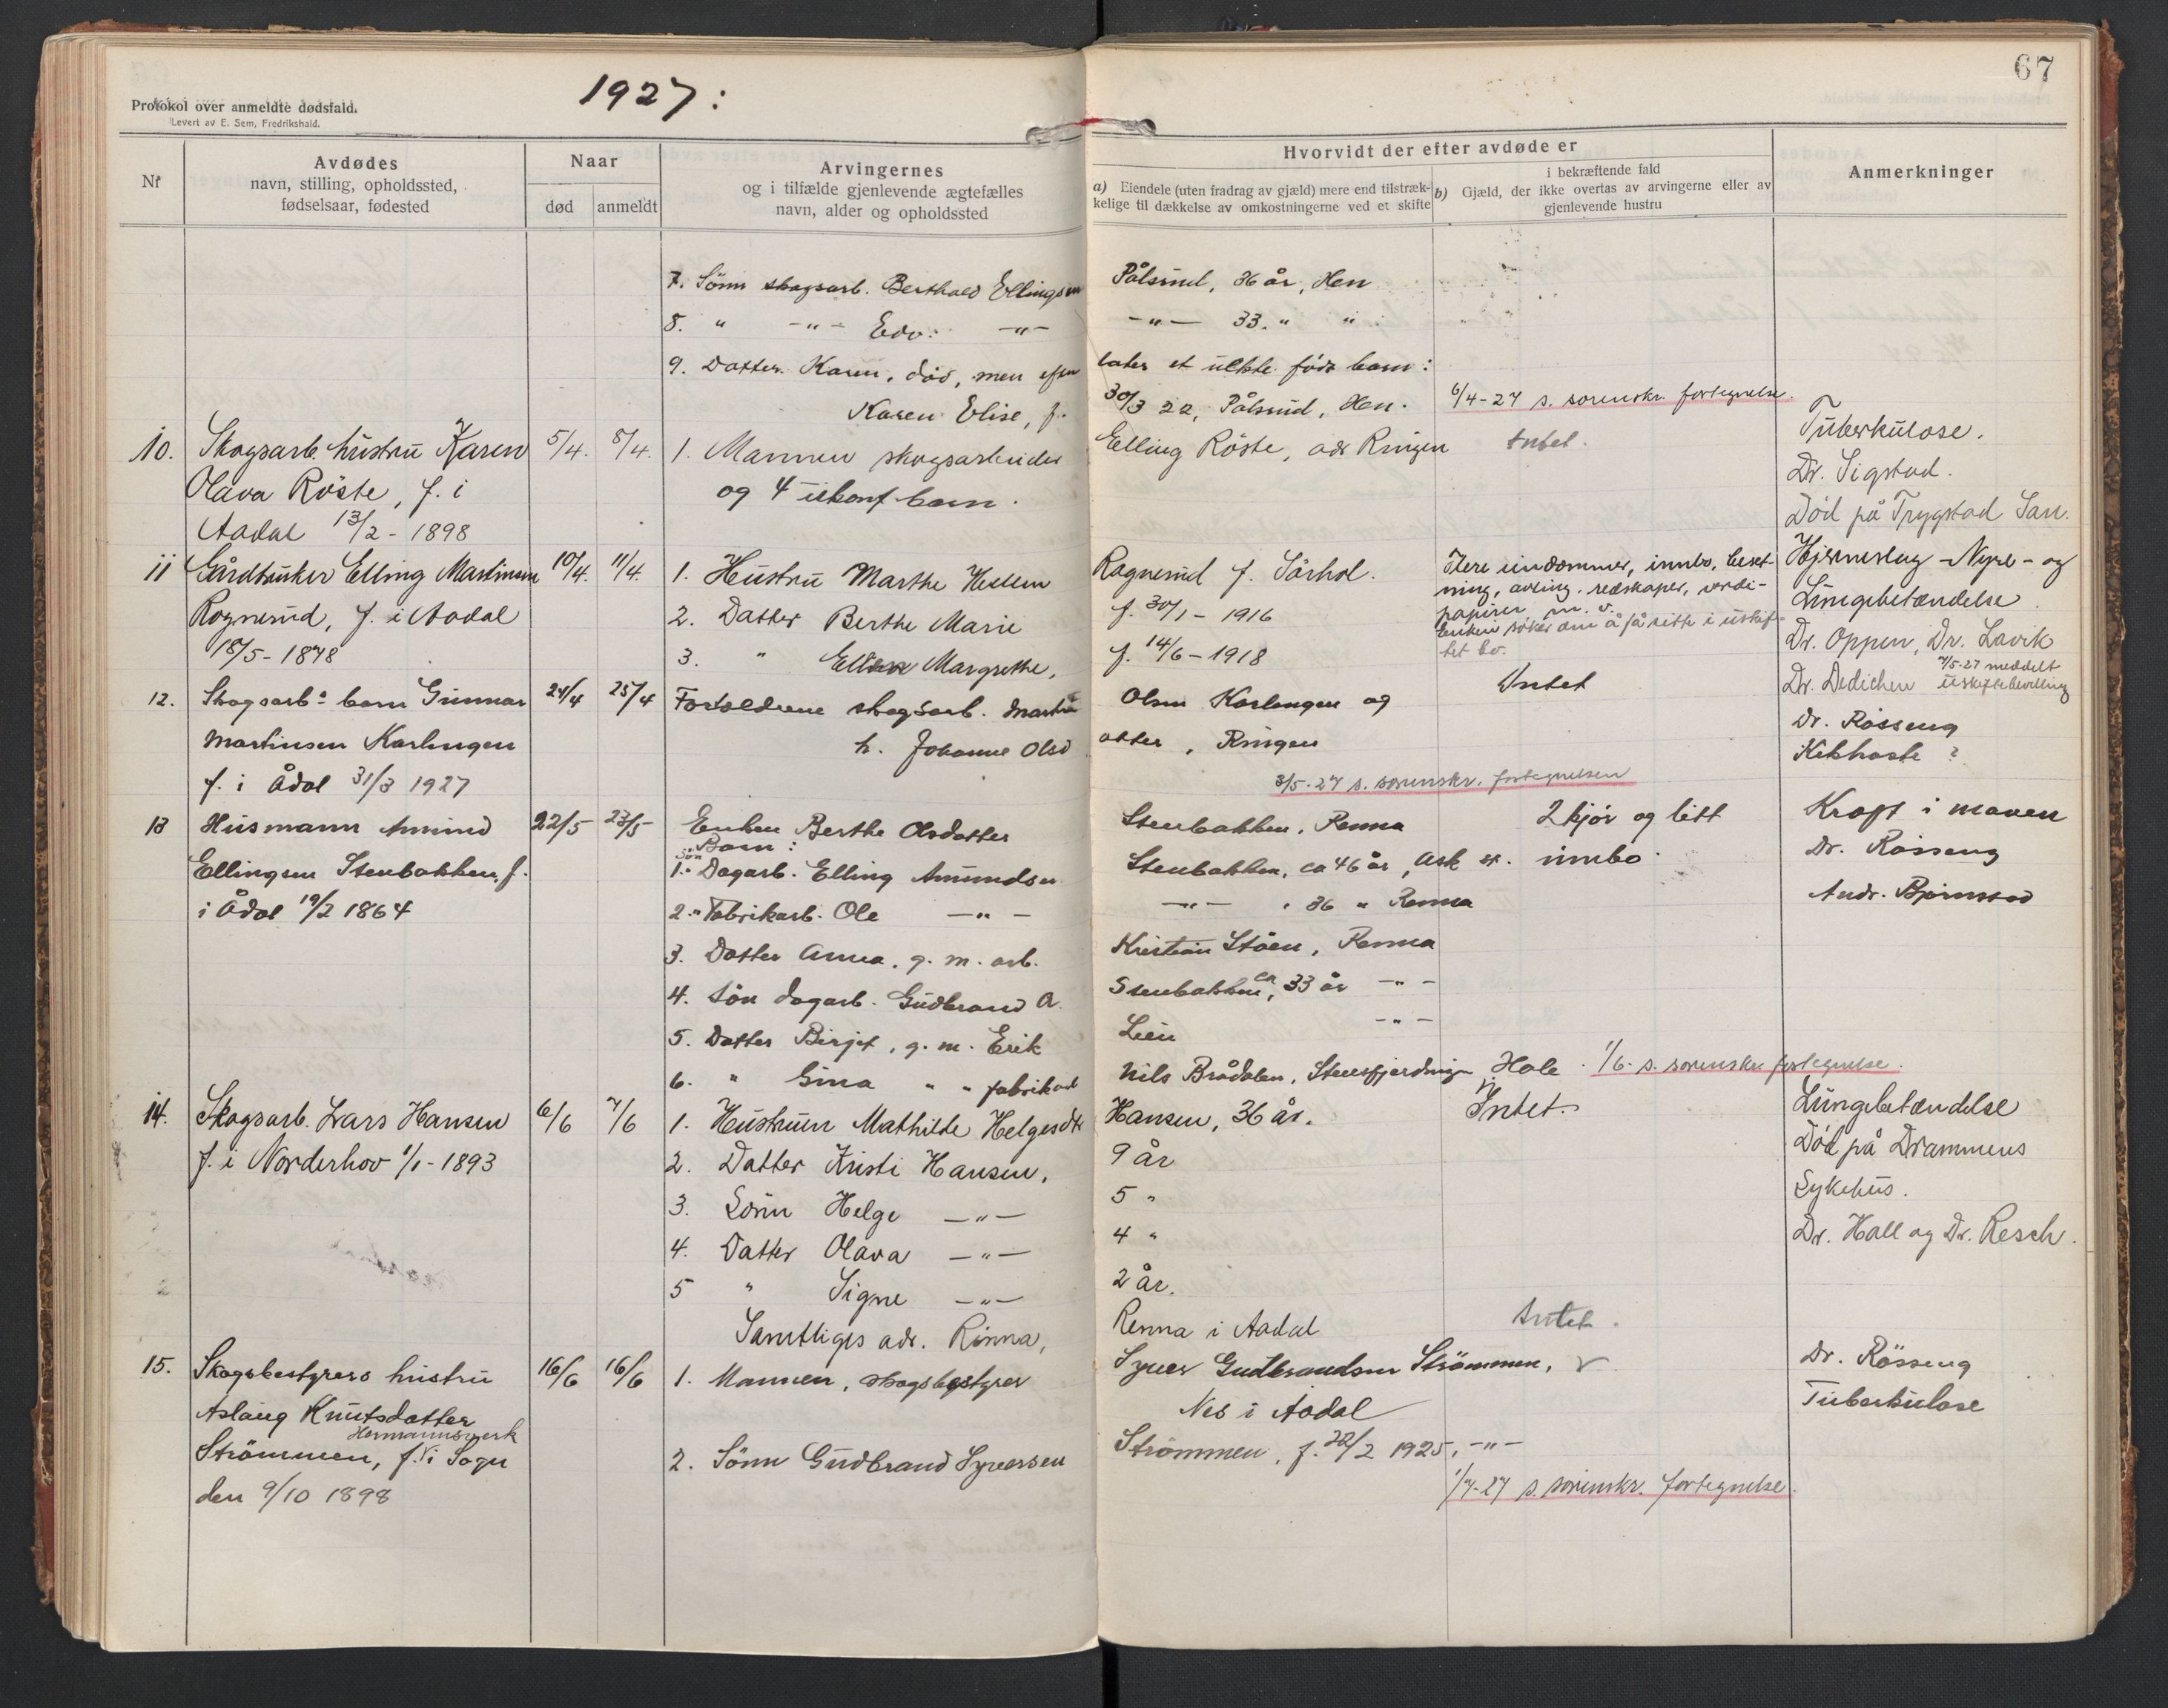 67
1927:
Protokol over anmeldte dødsfald.
Levert av E. Sem, Fredrikshald.
Nr
Avdødes
navn, stilling, opholdssted,
fødselsaar, fødested
Naar
død
anmeldt
Arvingernes
og i tilfælde gjenlevende ægtefælles
navn, alder og opholdssted
Hvorvidt der efter avdøde er
a) Eiendele (uten fradrag av gjæld) mere end tilstræk-
kelige til dækkelse av omkostningerne ved et skifte
i bekræftende fald
b) Gjæld, der ikke overtas av arvingerne eller av
gjenlevende hustru
Anmerkninger
7. Sönn skogsarb. Berthold Ellingsen Pålsrud, 36 år, Hen
8. " -"- Edv. -"- -"- 33 " "
9. Datter Karen, död, men efter later et uekte född barn:
Karen Elise, f. 30/3 22, Pålsrud, Hen. 6/4-27 s. sorenskr. fortegnelse.
10. Skogsarb. hustru Karen 5/4. 8/4. 1. Mannen skogsarbeider Elling Röste, adr Ringen Intet. Tuberkulose.
Olava Röste, f. i og 4 ukonf. barn. Dr. Sigstad.
Aadal 13/2 - 1898 Död på Trygstad San.
11 Gårdbruker Elling Martinsen 10/4. 11/4. 1. Hustru Marthe Helen Rognerud f. Sörhol. Flere eiendommer, innbo, beset- Hjerneslag - Nyre - og
ning, avling, redskaper, verdi-
Rognerud, f. i Aadal 2. Datter Berthe Marie f. 30/1 - 1916 papirer m. v. Lungebetændelse
Enken söker om å få sitte i uskif-
18/5 - 1878 3. " Ellen Margrethe, f. 14/6 - 1918 tet bo. Dr. Oppen, Dr. Lavik
7/5-27 meddelt
12. Skogsarb. barn Gunnar 24/4 25/4 Foreldrene skogsarb. Martin Olsen Karlengen og Intet Dr. Dedichen uskiftebevilling
Martinsen Karlengen h. Johanne Olsd atter, Ringen Dr. Rösseng
f. i Ådal 31/3 1927 Kikhoste ?
3/5-27 s. sorenskr. fortegnelsen
13 Husmann Amund 22/5 23/5 Enken Berthe Olsdatter Stenbakken, Renna 2 kjör og litt Kreft i maven
Barn:
Ellingsen Stenbakken, f. Sön 1. Dagarb. Elling Amundsen Stenbakken, ca 46 år, Ask st. innbo. Dr. Rösseng
i Ådal 19/2 1864 2. " Fabrikarb. Ole -"- -"- " 36 " Renna Andr. Björnstad
3. Datter Anna, g. m. arb. Kristian Stöen, Renna
4. Sön dagarb. Gudbrand A. Stenbakken, ca 33 år -"-
5. Datter Birgit, g. m. Erik Lein -"-
6. " Gina " " fabrikarb Nils Brådalen, Steensfjerdingen, Hole. 1/6 s. sorenskr. fortegnelse.
14. Skogsarb. Lars Hansen 6/6 7/6 1. Hustruen Mathilde Helgesdtr Hansen, 36 år. Intet. Lungebetændelse
f. i Norderhov 1/1 - 1893 2. Datter Kristi Hansen, 9 år Död på Drammens
3. Sönn Helge -"- 5 " Sykehus.
4. Datter Olava -"- 4 " Dr. Hall og Dr. Resch.
5 " Signe -"- 2 år.
Samtliges adr. Rinna, Renna i Aadal Intet.
15. Skogbestyrers hustru 16/6 16/6 1. Mannen, skogsbestyrer Syver Gudbrandsen Strömmen, Dr. Rösseng
Aslaug Knutsdatter Nes i Aadal Tuberkulose
Hermannsverk
Strömmen, f. i Sogn 2. Sönn Gudbrand Syversen Strömmen, f. 22/2 1925, -"-
den 9/10 1898 1/7-27 s. sorenskr. fortegnelse.